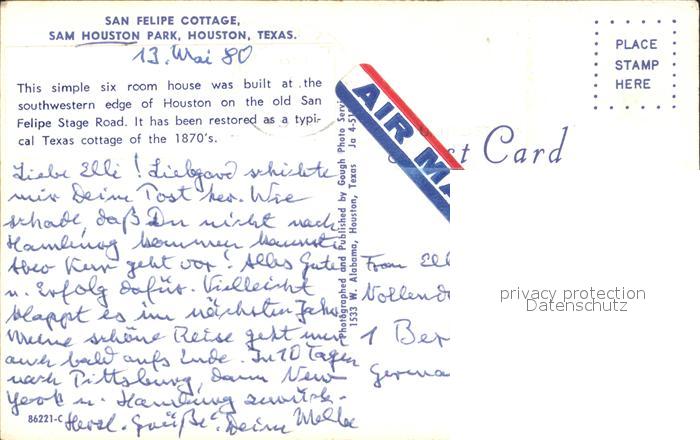 SAN FELIPE COTTAGE,
SAM HOUSTON PARK, HOUSTON, TEXAS.
13. Mai 80
This simple six room house was built at the
southwestern edge of Houston on the old San
Felipe Stage Road. It has been restored as a typi-
cal Texas cottage of the 1870's.
Liebe Elli! Liebgard schickte
mir Deine Post her. Wie
schade, daß Du nicht nach
Hamburg kommen kannst.
Aber Kur geht vor! Alles Gute
u. Erfolg dafür. Vielleicht
klappt es im nächsten Jahr.
Meine schöne Reise geht nun
auch bald aufs Ende. In 10 Tagen
nach Pittsburg, dann New
York u. Hamburg zurück.
Herzl. Grüße! Deine
86221-C
Photographed and Published by Gough Photo Servi
1533 W. Alabama, Houston, Texas Ja 4-51
AIR MA
st Card
PLACE
STAMP
HERE
Frau Ell
Vollend
1 Ber
Germa
privacy protection
Datenschutz